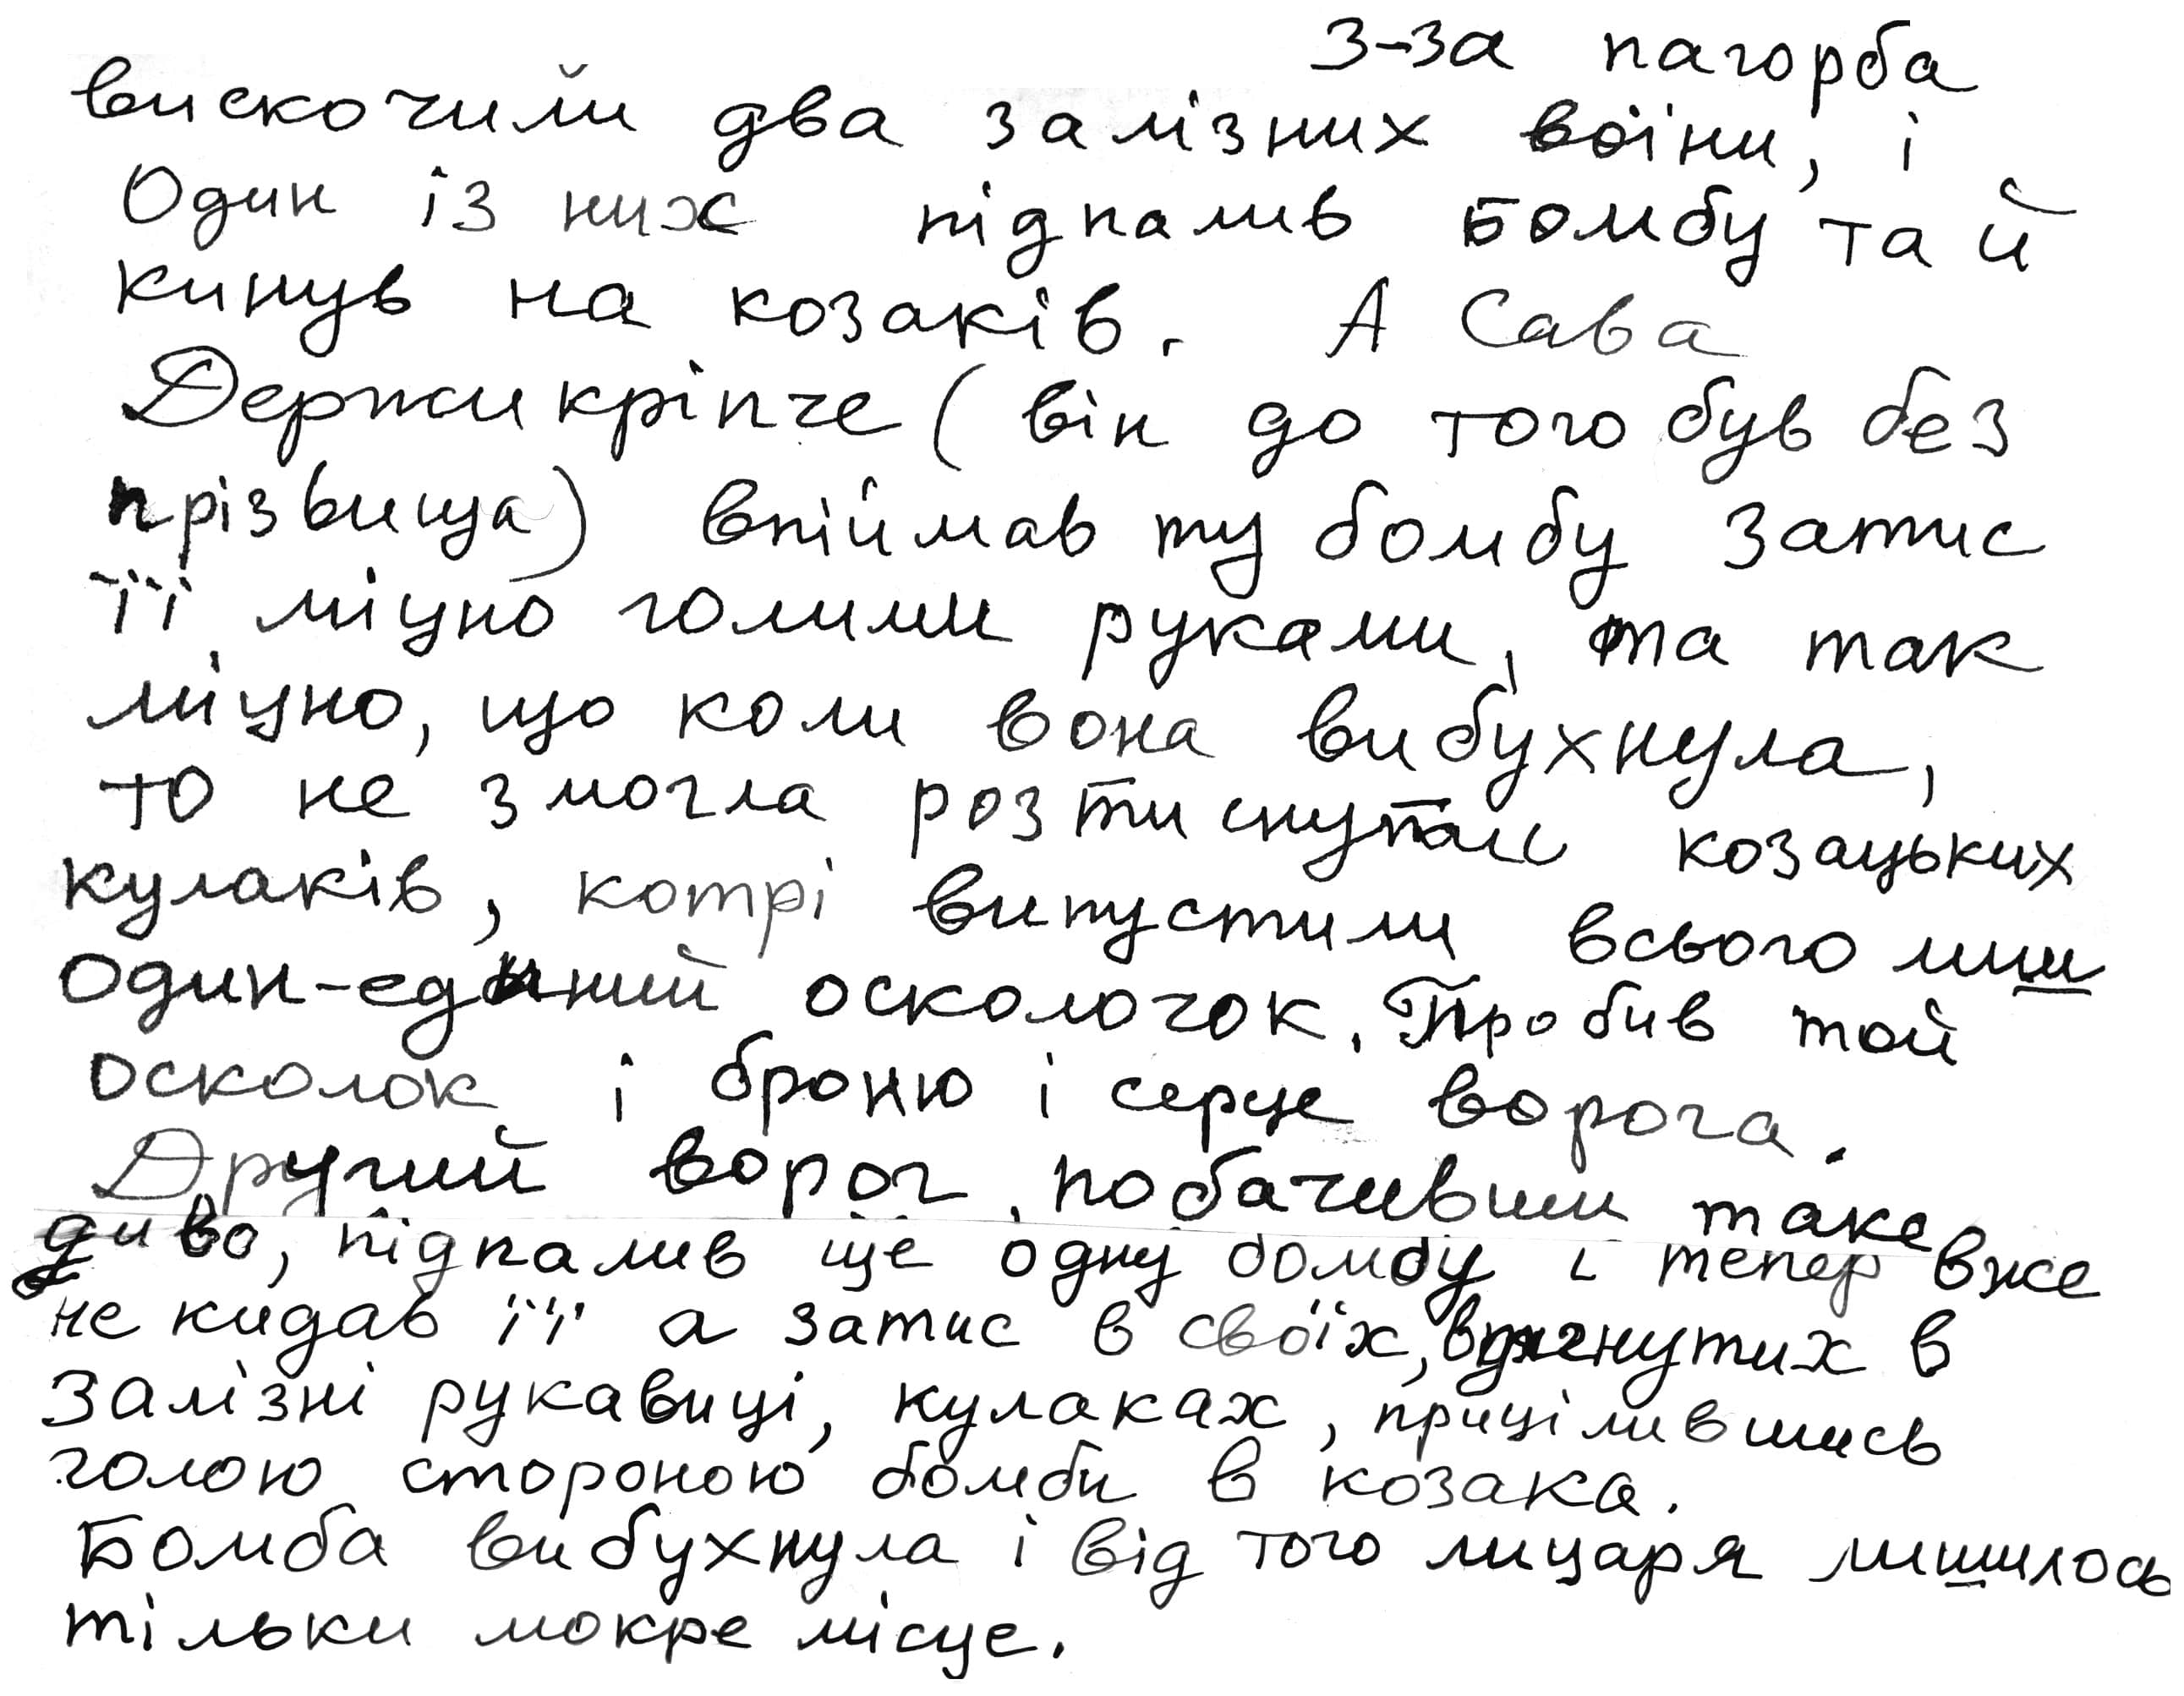 з-за пагорба
вискочили два залізних воїни, і
Один із них підпалив бомбу та й
кинув на козаків. А Сава
Держикріпче (він до того був без
прізвища) впіймав ту бомбу затис
її міцно голими руками, та так
міцно, що коли вона вибухнула,
то не змогла розтиснути козацьких
кулаків, котрі випустили всього лиш
один-єдиний осколочок. Пробив той
осколок і броню і серце ворога.
Другий ворог, побачивши таке
диво, підпалив ще одну бомбу і тепер вже
не кидав її а затис в своїх, вдягнутих в
залізні рукавиці, кулаках, прицілившись
голою стороною бомби в козака.
Бомба вибухнула і від того лицаря лишилось
тільки мокре місце.